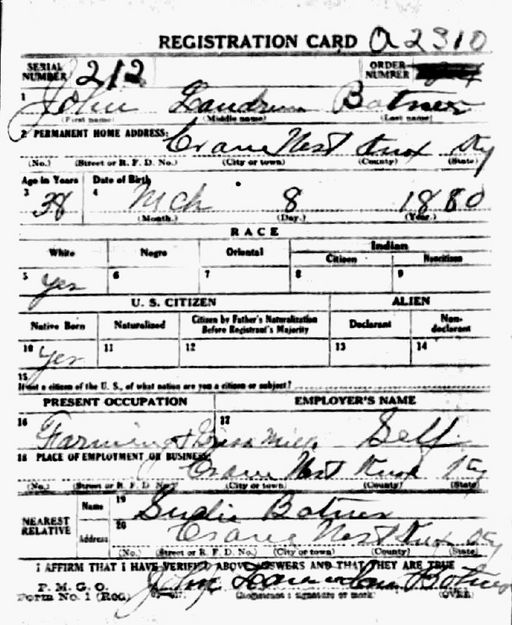 REGISTRATION CARD A2310
SERIAL NUMBER 212 ORDER NUMBER
1 John Landrum Botner
(First name) (Middle name) (Last name)
2 PERMANENT HOME ADDRESS:
Crane Nest Knox Ky
(No.) (Street or R. F. D. No.) (City or town) (County) (State)
Age in Years Date of Birth
3 38 4 Mch 8 1880
(Month.) (Day.) (Year.)
RACE
White Negro Oriental Indian
Citizen Noncitizen
5 yes 6 7 8 9
U. S. CITIZEN ALIEN
Native Born Naturalized Citizen by Father's Naturalization Before Registrant's Majority Declarant Non-declarant
10 yes 11 12 13 14
15
If not a citizen of the U. S., of what nation are you a citizen or subject?
PRESENT OCCUPATION EMPLOYER'S NAME
16 Farming & Mill 17 Self
18 PLACE OF EMPLOYMENT OR BUSINESS:
Crane Nest Knox Ky
(No.) (Street or R. F. D. No.) (City or town) (County) (State)
NEAREST RELATIVE Name 19 Sudie Botner
Address 20 Crane Nest Knox Ky
(No.) (Street or R. F. D. No.) (City or town) (County) (State)
I AFFIRM THAT I HAVE VERIFIED ABOVE ANSWERS AND THAT THEY ARE TRUE
P. M. G. O.
Form No. 1 (Red) John Botner
(Registrant's signature or mark) (OVER)